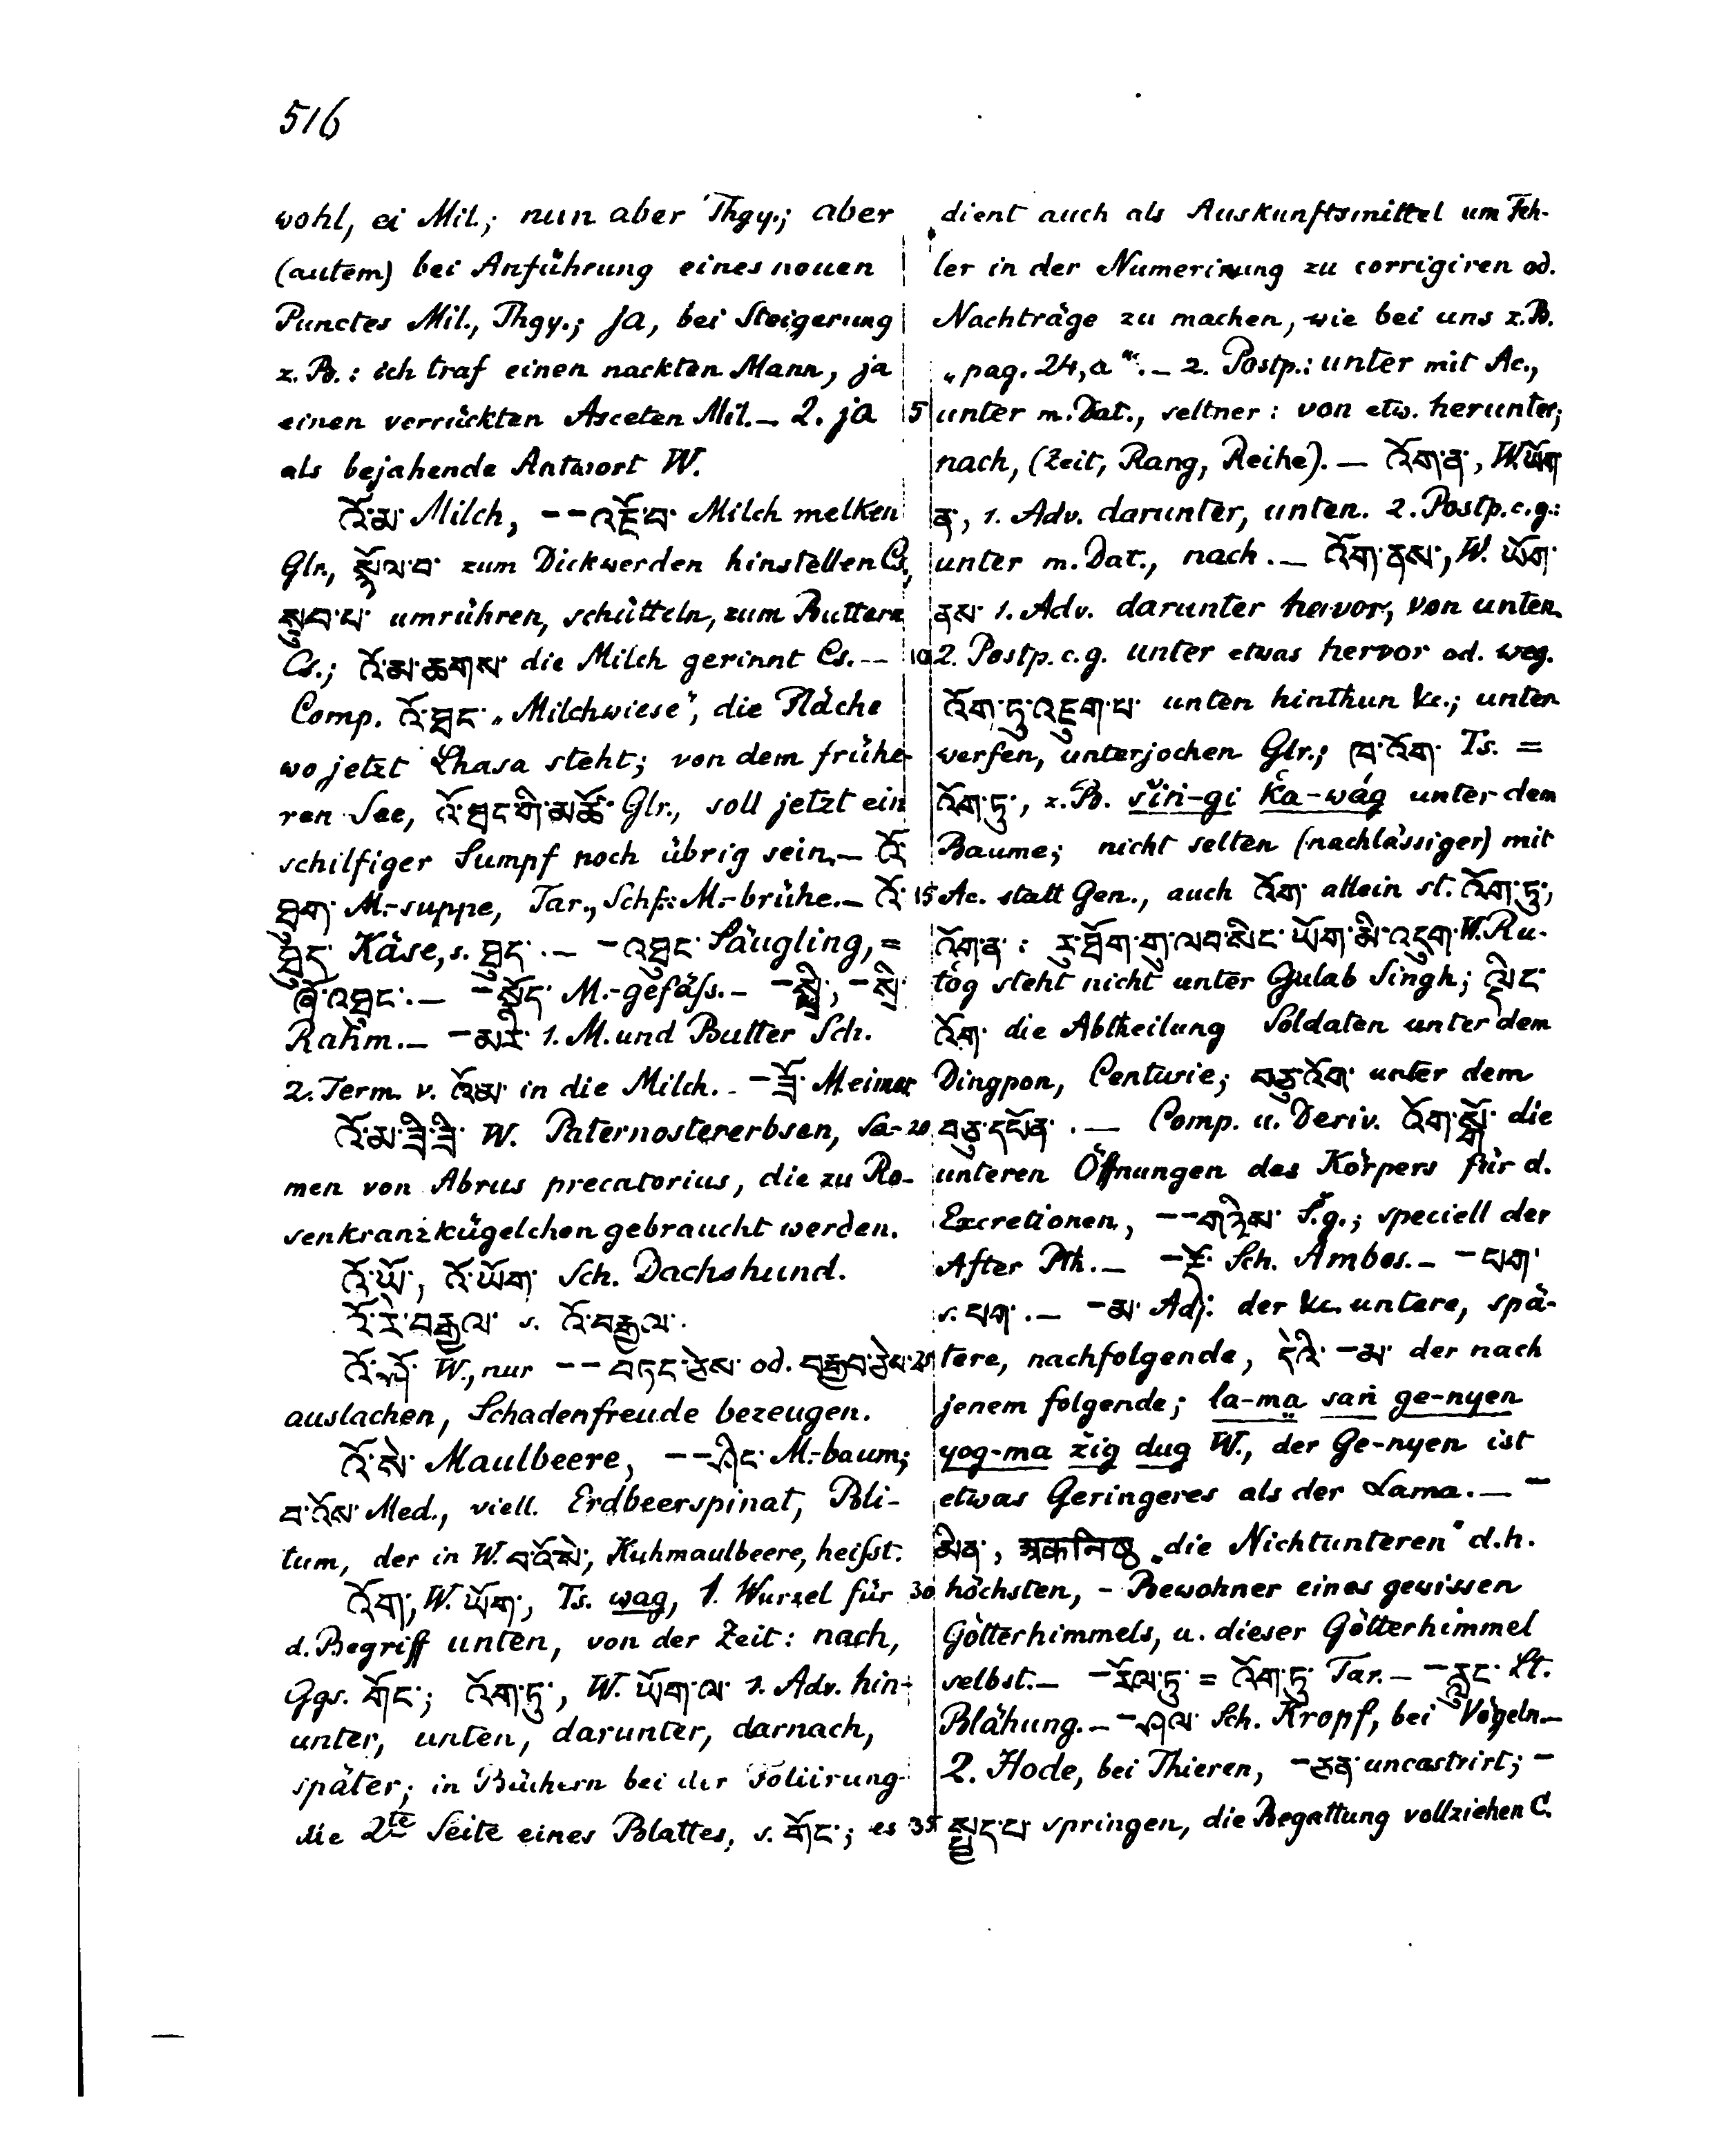 516
wohl, ei Mil.; nun aber Thgy.; aber
(autem) bei Anführung eines neuen
Punctes Mil., Thgy.; ja, bei Steigerung
z. B.: ich traf einen nackten Mann, ja
einen verrückten Asceten Mil. _ 2. ja
als bejahende Antwort W.
འོ་མ་ Milch, -- འཇོ་བ་ Milch melken
Glr., སྙོལ་བ་ zum Dickwerden hinstellen Cs.,
སྲུབ་པ་ umrühren, schütteln, zum Buttern
Cs.; འོ་མ་ཆགས་ die Milch gerinnt Cs. --
Comp. འོ་ཐང་ „Milchwiese“, die Fläche
wo jetzt Lhasa steht; von dem frühe-
ren See, འོ་ཐང་གི་མཚོ་ Glr., soll jetzt ein
schilfiger Sumpf noch übrig sein. _ འོ་
ཐུག་ M.-suppe, Tar., Schf.: M.-brühe. _ འོ་
ཐུད་ Käse, s. ཐུད་. _ - འཐུང་ Säugling, =
ཞོ་འཐུང་. _ - སྣོད་ M.-gefäss. _ - སྤྲི་, - སྲི་
Rahm. _ - མར་ 1. M. und Butter Sch.
2. Term. v. འོ་མ་ in die Milch. _ - ཟོ་ M.eimer
འོ་མ་ཟི་ཟི་ W. Paternostererbsen, Sa-
men von Abrus precatorius, die zu Ro-
senkranzkügelchen gebraucht werden.
འོ་ཡོ་, འོ་ཡོག་ Sch. Dachshund.
འོ་རེ་བརྒྱལ་ s. འོ་བརྒྱལ་.
འོ་ཤོ་ W., nur -- བཏང་ཅེས་ od. བརྒྱབ་ཅེས་
auslachen, Schadenfreude bezeugen.
འོ་སེ་ Maulbeere, -- ཤིང་ M.-baum;
བ་འོས་ Med., viell. Erdbeerspinat, Bli-
tum, der in W. བ་འོ་སེ་, Kuhmaulbeere, heisst.
འོག་, W. ཡོག་, Ts. wag, 1. Wurzel für
d. Begriff unten, von der Zeit: nach,
Ggs. གོང་; འོག་ཏུ་, W. ཡོག་ལ་ 1. Adv. hin-
unter, unten, darunter, darnach,
später; in Büchern bei der Foliirung
die 2te Seite eines Blattes, s. གོང་; es
dient auch als Auskunftsmittel um Feh-
ler in der Numerirung zu corrigiren od.
Nachträge zu machen, wie bei uns z. B.
„pag. 24, a“. _ 2. Postp.: unter mit Ac.,
5 unter m. Dat., seltner: von etw. herunter;
nach, (Zeit, Rang, Reihe). _ འོག་ན་, W. ཡོག་
ན་, 1. Adv. darunter, unten. 2. Postp. c. g.:
unter m. Dat., nach. _ འོག་ནས་, W. ཡོག་
ནས་ 1. Adv. darunter hervor, von unten
10 2. Postp. c. g. unter etwas hervor od. weg.
འོག་ཏུ་འཇུག་པ་ unten hinthun &c.; unter
werfen, unterjochen Glr.; ཁ་འོག་ Ts. =
འོག་ཏུ་, z. B. šiṅ-gi ḱa-wág unter dem
Baume; nicht selten (nachlässiger) mit
15 Ac. statt Gen., auch འོག་ allein st. འོག་ཏུ་,
འོག་ན་: རུ་ཐོག་གུ་ལབ་སིང་ཡོག་མི་འདུག་ W. Ru-
tóg steht nicht unter Gulab Singh; ལྡིང་
འོག་ die Abtheilung Soldaten unter dem
Dingpon, Centurie; བརྒྱ་འོག་ unter dem
20 བརྒྱ་དཔོན་. _ Comp. u. Deriv. འོག་སྒོ་ die
unteren Öffnungen des Körpers für d.
Excretionen, -- གཉིས་ S.g.; speciell der
After Pth. _ - Sch. Ambos. _ - པག་
s. པག་. _ - མ་ Adj. der &c. untere, spä-
25 tere, nachfolgende, དེའི་ - མ་ der nach
jenem folgende; la-ma saṅ ge-nyen
yog-ma žig dug W., der Ge-nyen ist
etwas Geringeres als der Lama. _ -
མིན་, अकनिष्ठ „die Nichtunteren“ d. h.
30 höchsten, - Bewohner eines gewissen
Götterhimmels, u. dieser Götterhimmel
selbst. _ - རོལ་ཏུ་ = འོག་ཏུ་ Tar. _ - རླུང་ Lt.
Blähung. _ - ཤལ་ Sch. Kropf, bei Vögeln. _
2. Hode, bei Thieren, - ཅན་ uncastrirt; -
35 སྤྲད་པ་ springen, die Begattung vollziehen C.